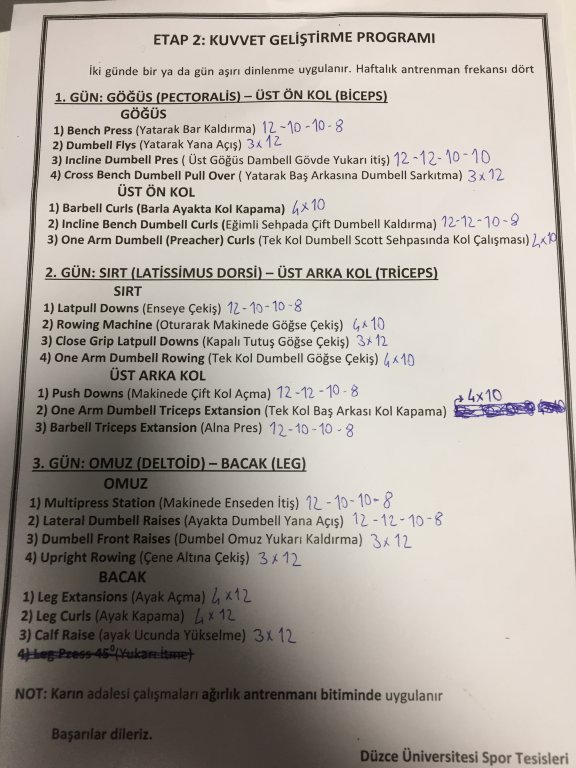 ETAP 2: KUVVET GELİŞTİRME PROGRAMI
İki günde bir ya da gün aşırı dinlenme uygulanır. Haftalık antrenman frekansı dört
1. GÜN: GÖĞÜS (PECTORALİS) – ÜST ÖN KOL (BİCEPS)
GÖĞÜS
1) Bench Press (Yatarak Bar Kaldırma) 12-10-10-8
2) Dumbell Flys (Yatarak Yana Açış) 3x12
3) Incline Dumbell Pres ( Üst Göğüs Dambell Gövde Yukarı itiş) 12-12-10-10
4) Cross Bench Dumbell Pull Over ( Yatarak Baş Arkasına Dumbell Sarkıtma) 3x12
ÜST ÖN KOL
1) Barbell Curls (Barla Ayakta Kol Kapama) 4x10
2) Incline Bench Dumbell Curls (Eğimli Sehpada Çift Dumbell Kaldırma) 12-12-10-8
3) One Arm Dumbell (Preacher) Curls (Tek Kol Dumbell Scott Sehpasında Kol Çalışması) 4x10
2. GÜN: SIRT (LATİSSİMUS DORSİ) – ÜST ARKA KOL (TRİCEPS)
SIRT
1) Latpull Downs (Enseye Çekiş) 12-10-10-8
2) Rowing Machine (Oturarak Makinede Göğse Çekiş) 4x10
3) Close Grip Latpull Downs (Kapalı Tutuş Göğse Çekiş) 3x12
4) One Arm Dumbell Rowing (Tek Kol Dumbell Göğse Çekiş) 4x10
ÜST ARKA KOL
1) Push Downs (Makinede Çift Kol Açma) 12-12-10-8
2) One Arm Dumbell Triceps Extansion (Tek Kol Baş Arkası Kol Kapama) 4x10
3) Barbell Triceps Extansion (Alna Pres) 12-10-10-8
3. GÜN: OMUZ (DELTOİD) – BACAK (LEG)
OMUZ
1) Multipress Station (Makinede Enseden İtiş) 12-10-10-8
2) Lateral Dumbell Raises (Ayakta Dumbell Yana Açış) 12-12-10-8
3) Dumbell Front Raises (Dumbel Omuz Yukarı Kaldırma) 3x12
4) Upright Rowing (Çene Altına Çekiş) 3x12
BACAK
1) Leg Extansions (Ayak Açma) 4x12
2) Leg Curls (Ayak Kapama) 4x12
3) Calf Raise (ayak Ucunda Yükselme) 3x12
4) Leg Press 45⁰(Yukarı İtme)
NOT: Karın adalesi çalışmaları ağırlık antrenmanı bitiminde uygulanır
Başarılar dileriz.
Düzce Üniversitesi Spor Tesisleri